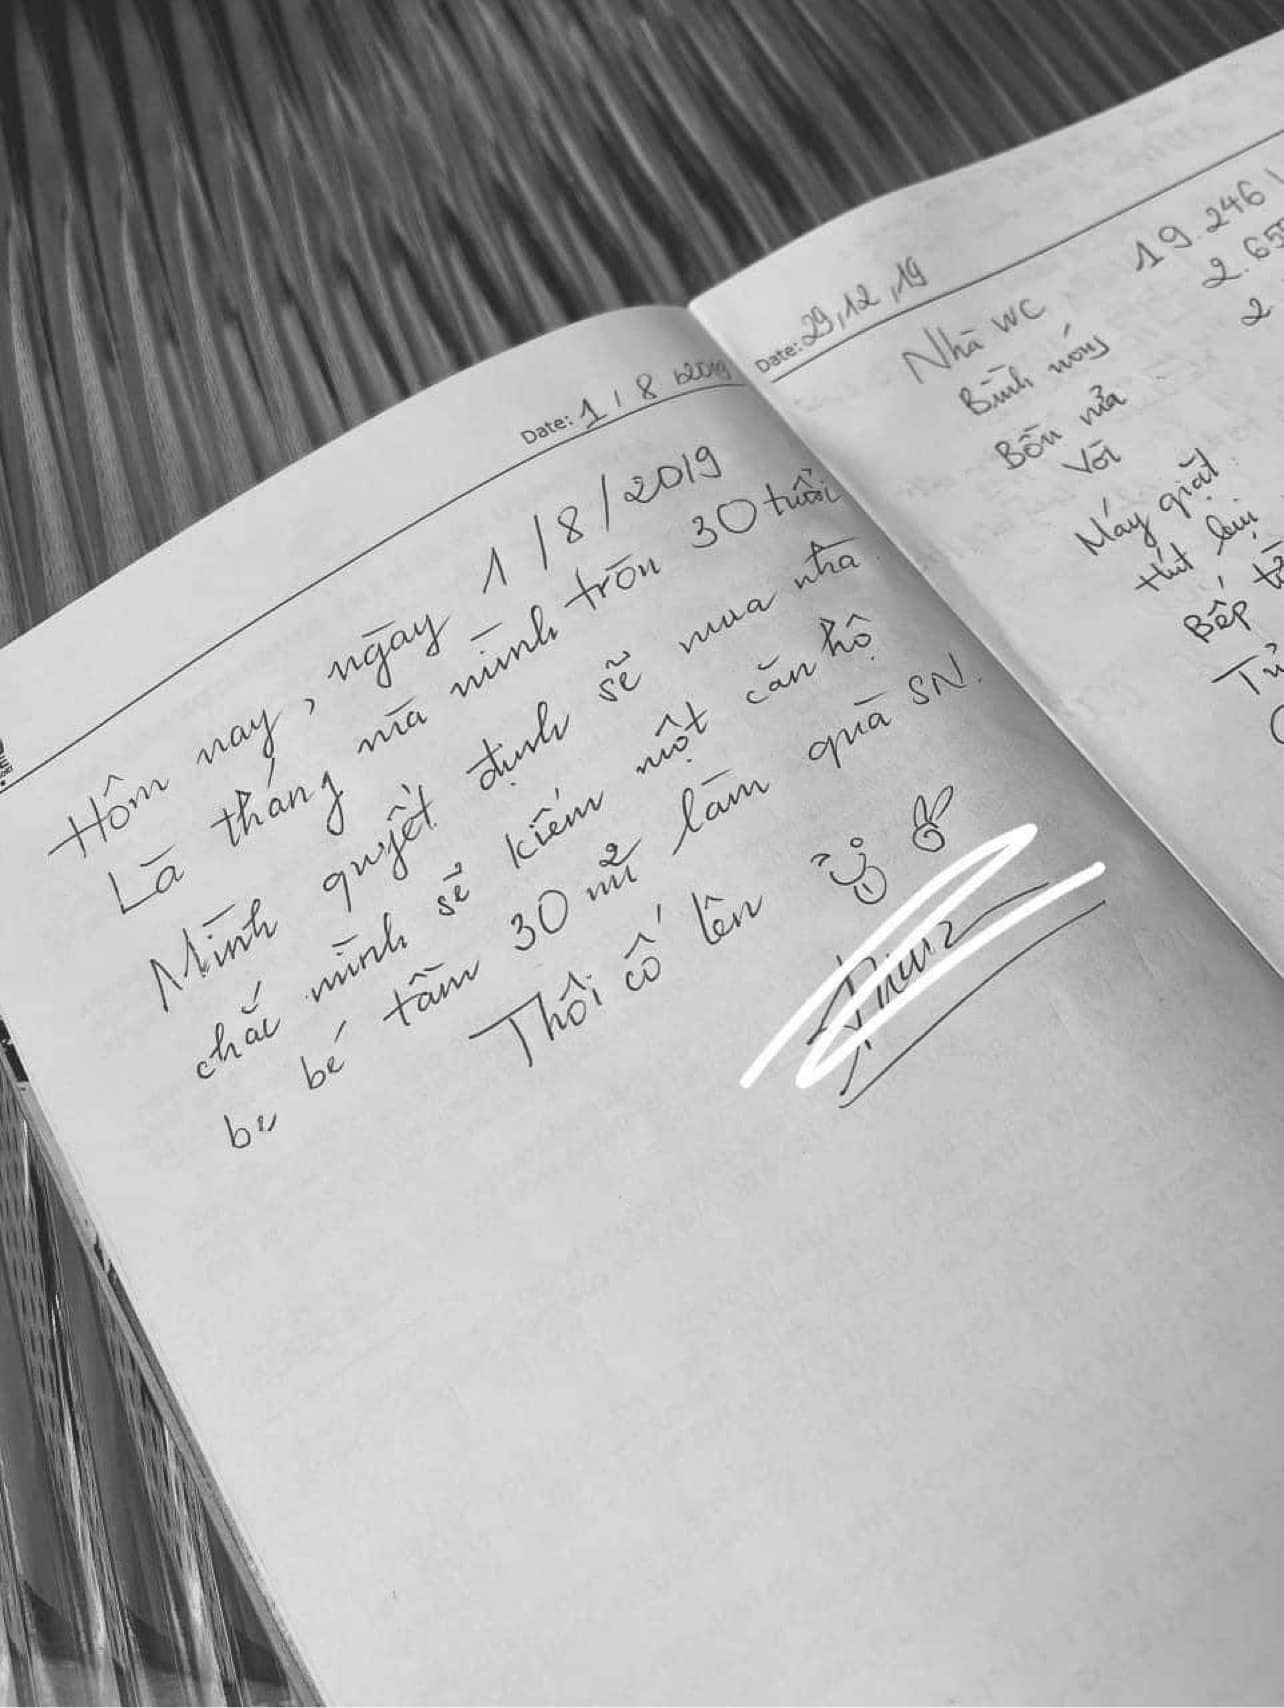 Date: 1 / 8 / 2019
Hôm nay, ngày 1/8/2019
Là tháng mà mình tròn 30 tuổi
Mình quyết định sẽ mua nhà.
chắc mình sẽ kiếm một căn hộ
be bé tầm 30 m2 làm quà SN.
Thôi cố lên
Date: 29,12,19
Nhà WC 19.246
Bình nóng 2.65
Bồn rửa 2
Vòi
Máy giặt
Hút bụi
Bếp